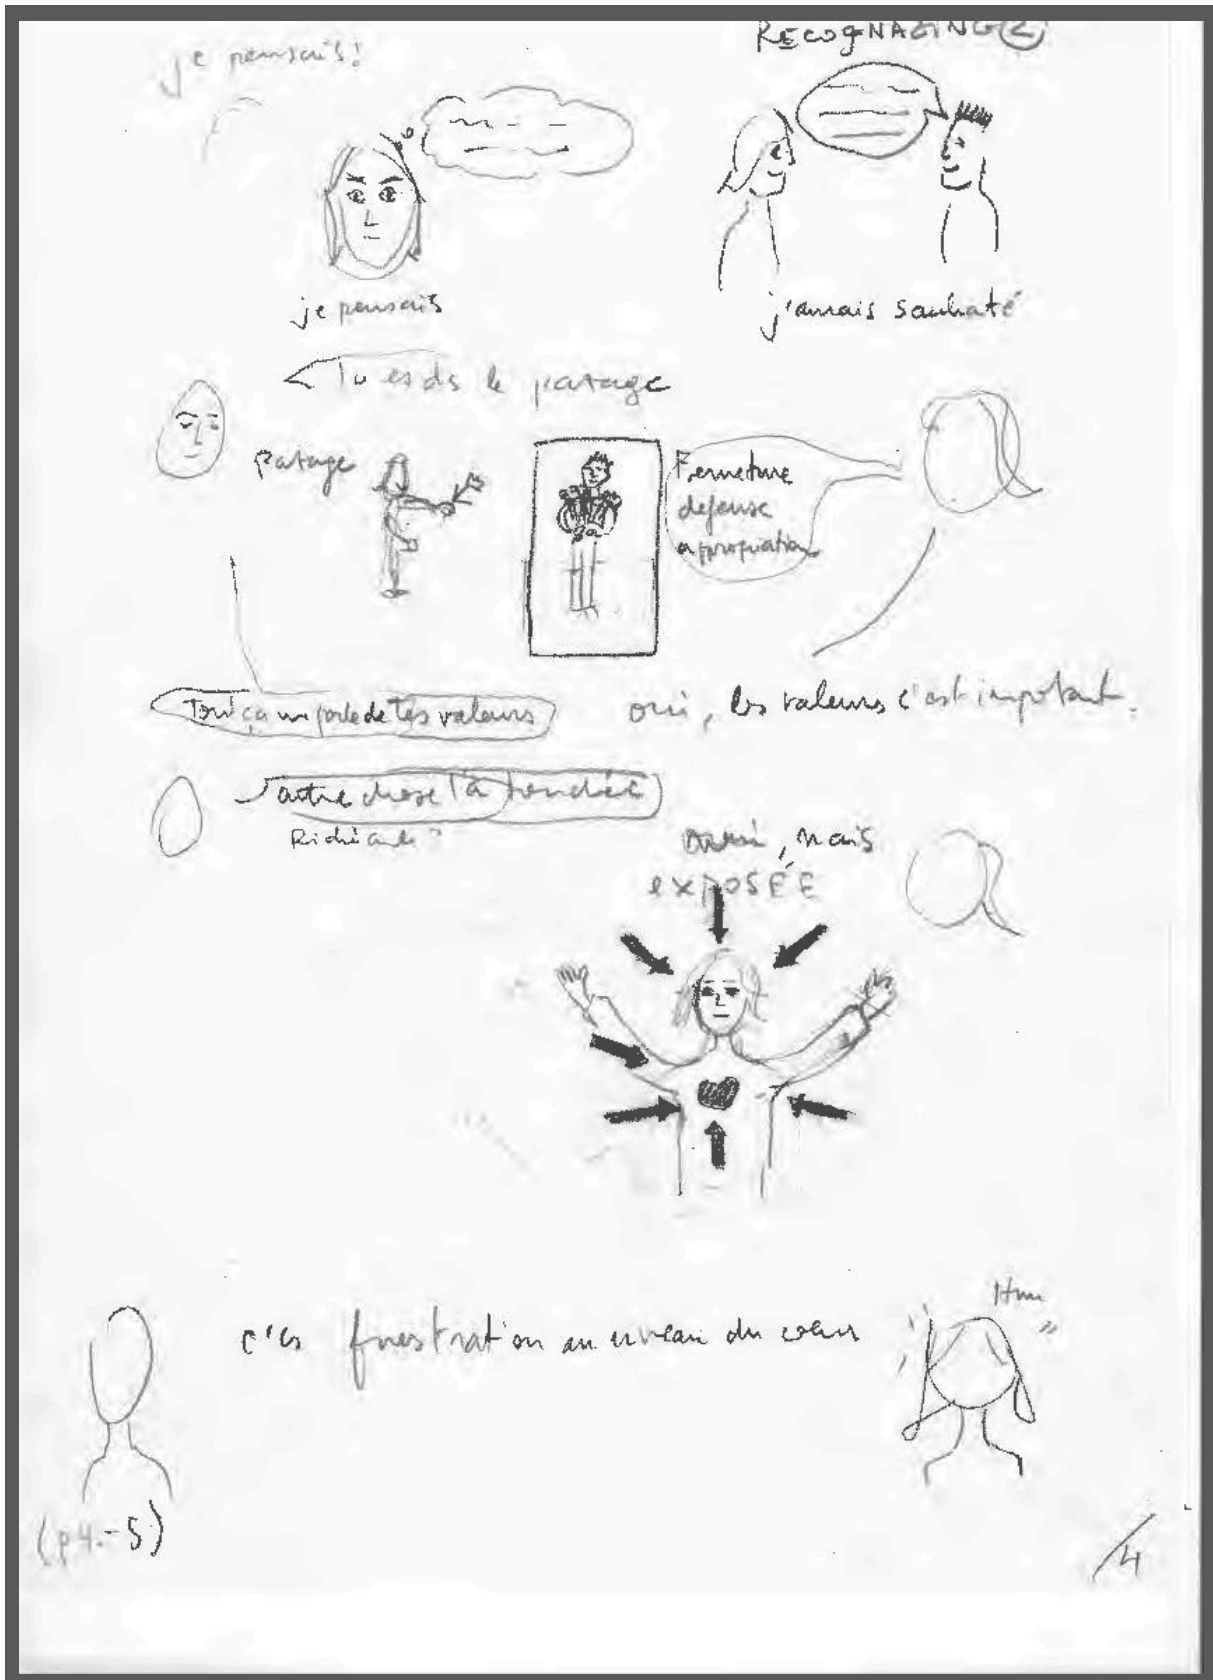 RECOGNAZING 2
je pensais!
je pensais
j'aurais souhaité
Tu es ds le patage
patage
Fermeture
defense
appropriation
Tout ça me parle de tes valeurs
oui, les valeurs c'est important.
autre chose t'a touchée
oui, mais
EXPOSÉE
Hum
c'es frustration au niveau du coeur
(p4.-5)
/4